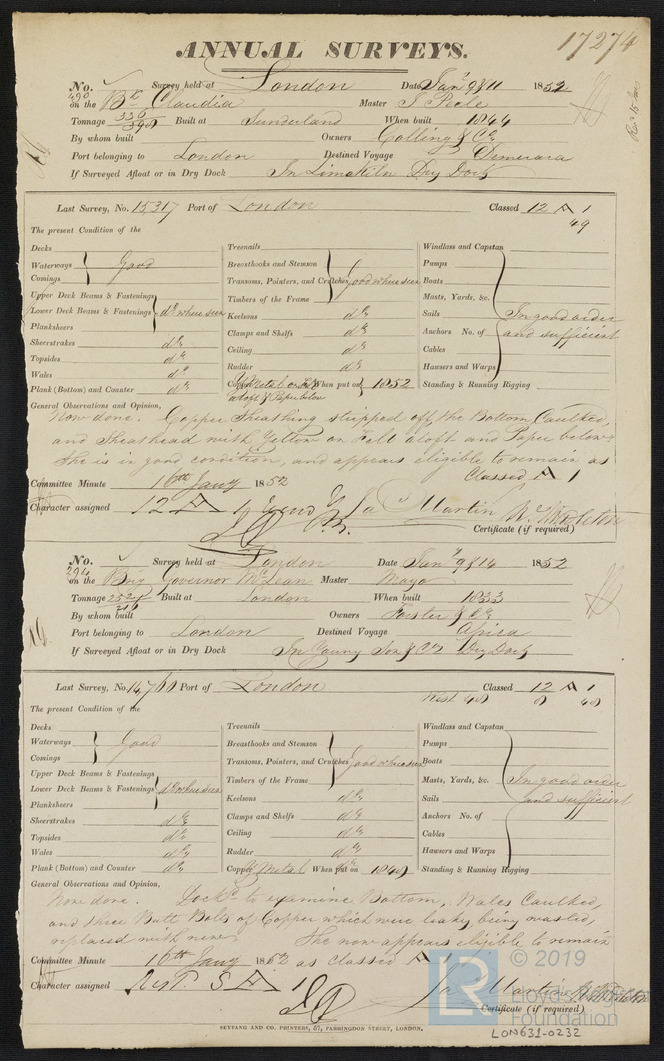 17274
ANNUAL SURVEYS.
No. 290 Survey held at London Date Jany 9 & 11 1852
on the Bk Claudia Master J Peele
Tonnage 336 / 390 Built at Sunderland When built 1844
By whom built Owners Colling & Co
Port belonging to London Destined Voyage Demerara
If Surveyed Afloat or in Dry Dock In Limekiln Dry Dock
Last Survey, No. 15317 Port of London Classed 12 A 1
49
The present Condition of the
Decks
Waterways
Comings
Good
Upper Deck Beams & Fastenings
Lower Deck Beams & Fastenings
Planksheers
do where seen
Sheerstrakes do
Topsides do
Wales do
Plank (Bottom) and Counter do
Treenails
Breasthooks and Stemson
Transoms, Pointers, and Crutches
Timbers of the Frame
Good where seen
Keelsons do
Clamps and Shelfs do
Ceiling do
Rudder do
Copper Y Metal on felt When put on 1852
aloft & Paper below
Windlass and Capstan
Pumps
Boats
Masts, Yards, &c.
Sails
Anchors No. of
Cables
Hawsers and Warps
In good order
and sufficient
Standing & Running Rigging
General Observations and Opinion,
Now done. Copper Sheathing stripped off, the Bottom Caulked,
and Sheathead with Yellow on Felt aloft and Paper below
She is in good condition, and appears eligible to remain as
Classed A 1
Committee Minute 16th Jany 1852
Character assigned 12 A 1 Jas Martin
Certificate (if required)
No. 294 Survey held at London Date Jany 9 & 14 1852
on the Brig Governor McLean Master Mayo
Tonnage 252 Built at London When built 1833
By whom built Owners Forster & Co
Port belonging to London Destined Voyage Africa
If Surveyed Afloat or in Dry Dock In Young Son & Co Dry Dock
Last Survey, No. 14,760 Port of London Classed 12 A 1
Rest. 48 8 48
The present Condition of the
Decks
Waterways
Comings
Good
Upper Deck Beams & Fastenings
Lower Deck Beams & Fastenings
Planksheers
do where seen
Sheerstrakes do
Topsides do
Wales do
Plank (Bottom) and Counter do
Treenails
Breasthooks and Stemson
Transoms, Pointers, and Crutches
Timbers of the Frame
Good where seen
Keelsons do
Clamps and Shelfs do
Ceiling do
Rudder do
Copper Y Metal When put on 1848
Windlass and Capstan
Pumps
Boats
Masts, Yards, &c.
Sails
Anchors No. of
Cables
Hawsers and Warps
In good order
and sufficient
Standing & Running Rigging
General Observations and Opinion,
Now done. Dock'd to examine Bottom, Wales Caulked,
and three Butt Bolts of Copper which were leaky, being wasted,
replaced with new. She now appears eligible to remain
Committee Minute 16th Jany 1852 as classed A 1
Character assigned Rest. 8 A 1 Jas Martin
Certificate (if required)
SEYFANG AND CO. PRINTERS, 57, FARRINGDON STREET, LONDON.
LR © 2019
Lloyd's Register
Foundation
LON631-0232